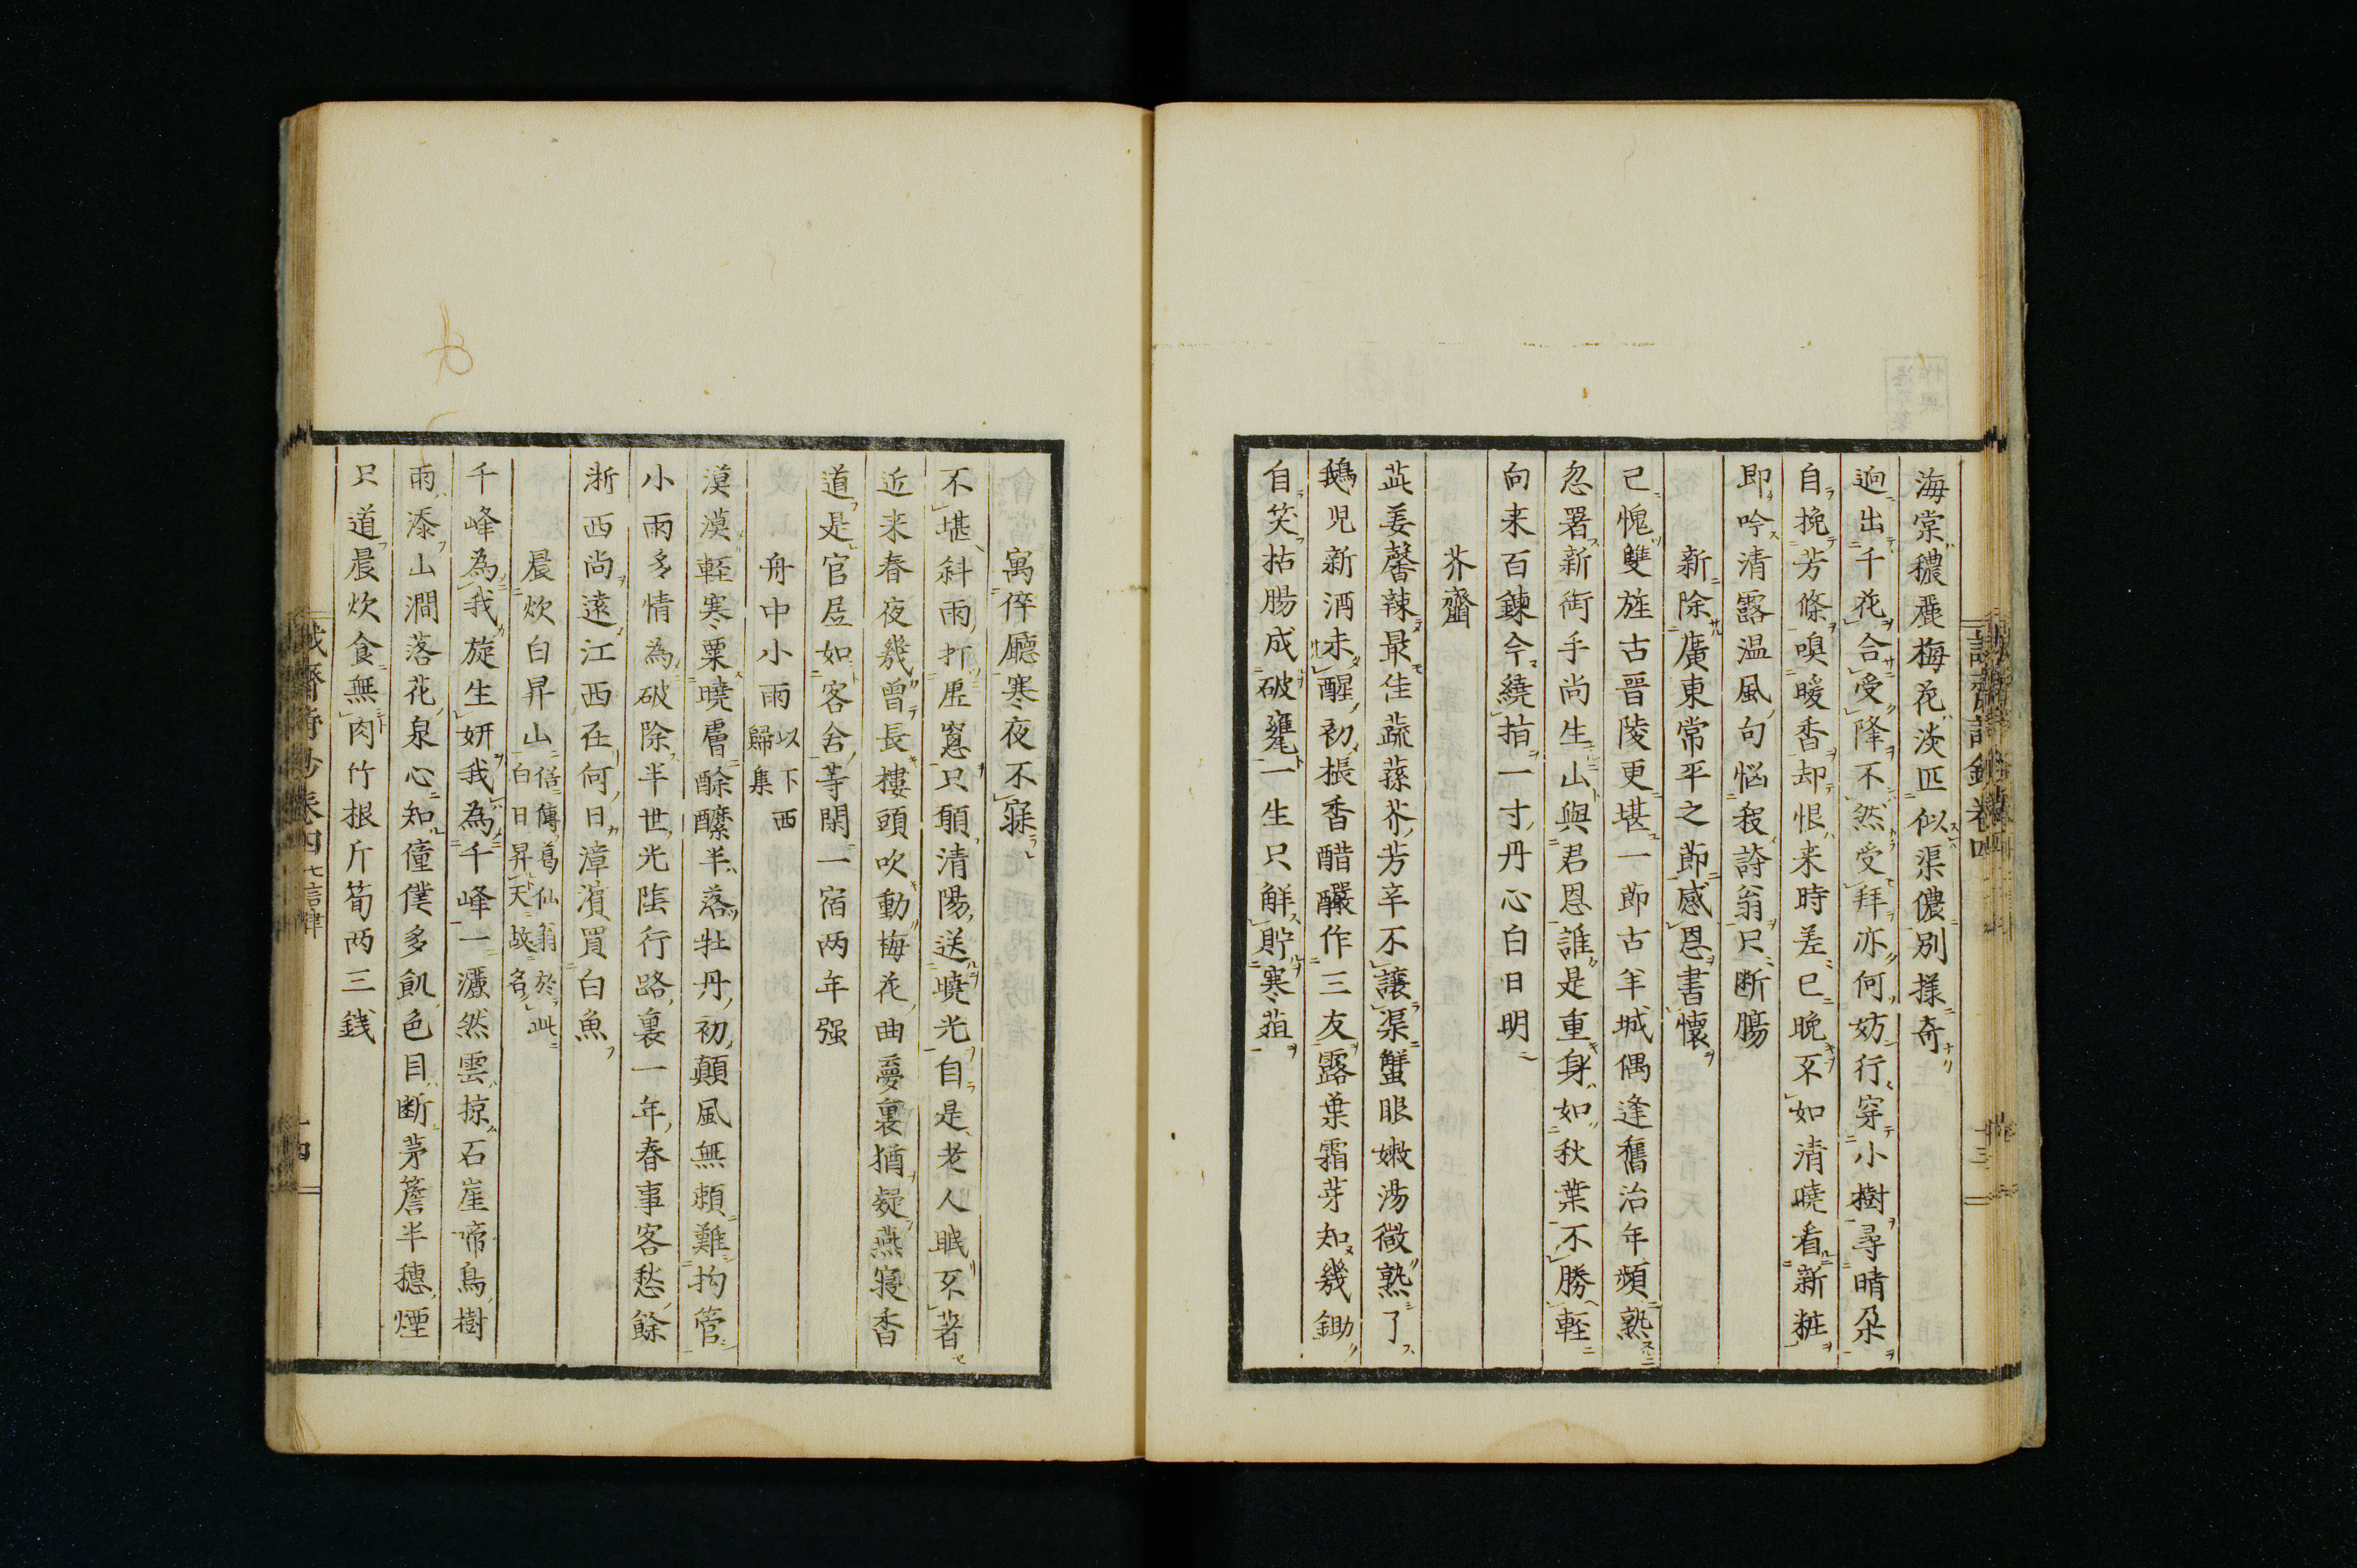 海棠穠麗梅花淡匹似渠儂別樣奇
逈出千花合受降不然受拜亦何妨行穿小樹尋晴朶
自挽芳條嗅暖香却恨来時差已晚不如清曉看新粧
即吟清露温風句惱殺詩翁只断腸
新除廣東常平之節感恩書懷
已愧雙旌古晋陵更堪一節古羊城偶逢舊治年頻熟
忽署新銜手尚生山與君恩誰是重身如秋葉不勝輕
向来百鍊今繞指一寸丹心白日明
芥齏
茈姜馨辣最佳蔬蓀芥芳辛不讓渠蟹眼嫩湯微熟了
鵝児新酒未醒初棖香醋釅作三友露葉霜芽知幾鋤
自笑枯腸成破甕一生只解貯寒葅
寓倅廳寒夜不寐
不堪斜雨打虛窓只願清陽送曉光自是老人眠不著
近来春夜幾曾長樓頭吹動梅花曲夢裏猶疑燕寢香
道是官居如客舍等閑一宿两年强
舟中小雨 以下西歸集
漠漠輕寒粟曉膚酴醾半落牡丹初顛風無頼難拘管
小雨多情為破除半世光陰行路裏一年春事客愁餘
浙西尚遠江西在何日漳濱買白魚
晨炊白昇山 俗傳葛仙翁於此白日昇天故名
千峰為我旋生妍我為千峰一灑然雲掠石崖啼鳥樹
雨添山澗落花泉心知僮僕多飢色目断茅簷半穗煙
只道晨炊食無肉竹根斤筍两三銭
誠齋詩鈔卷四 七言律
十四